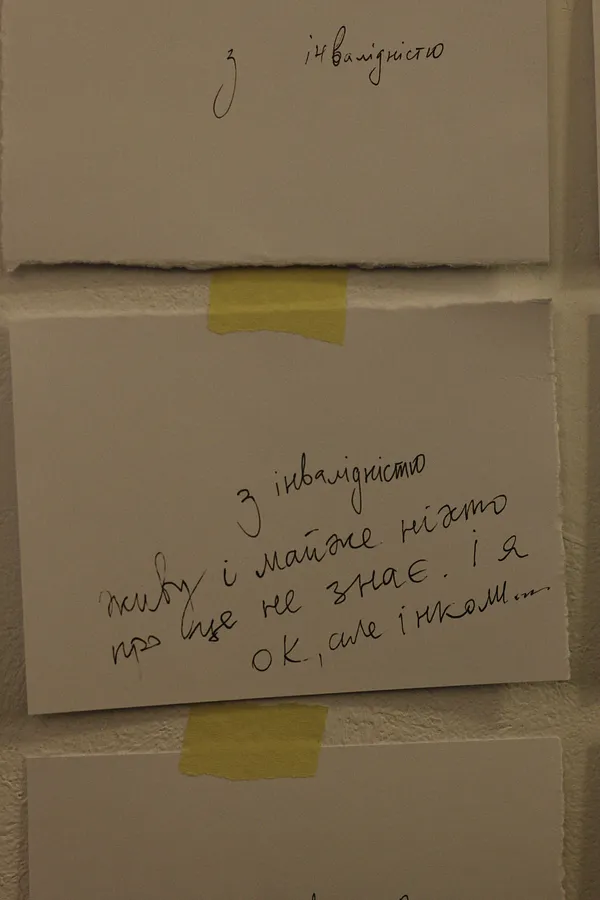 з інвалідністю
з інвалідністю
живу і майже ніхто
про це не знає. І я
ок, але інколи...